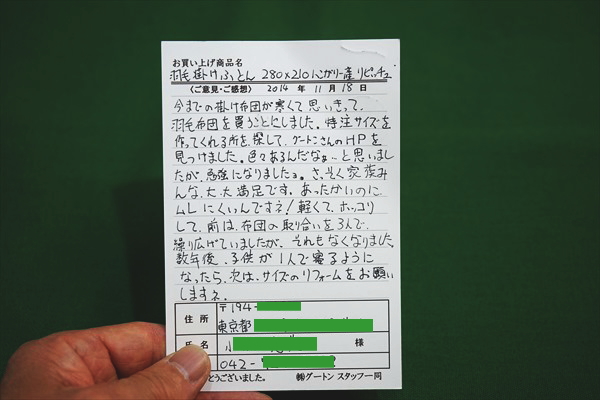 お買い上げ商品名
羽毛掛けふとん 280×210ハンガリー産リピッチェ
〈ご意見・ご感想〉 2014 年 11月 18日
今までの掛け布団が寒くて思いきって、
羽毛布団を買うことにしました。特注サイズを
作ってくれる所を探して、グートンさんのHPを
見つけました。色々あるんだなぁ…と思いまし
たが、勉強になりましたョ。さっそく家族み
んな、大、大満足です。あったかいのに
ムレにくいんですネ!軽くて、ホッコリ
して、前は、布団の取り合いを3人で、
繰り広げていましたが、それもなくなりました。
数年後、子供が1人で寝るように
なったら、次は、サイズのリフォームをお願い
しますネ。
住所
〒194-
東京都
氏名
小
様
042-
とうございました。 ㈱グートン スタッフ一同